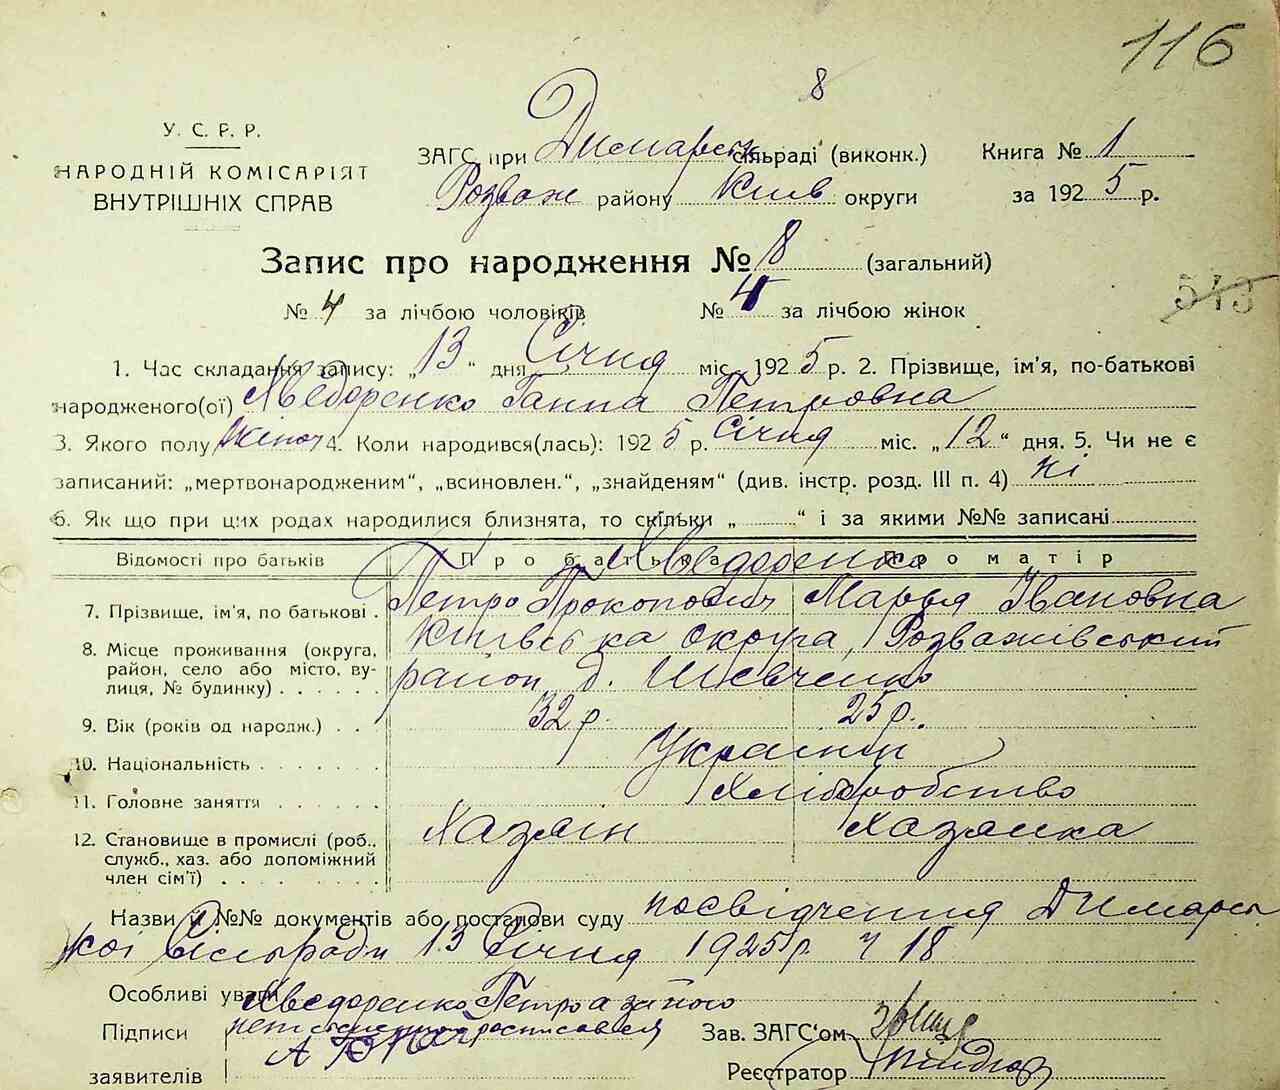 116
8
У. С. Р. Р.
НАРОДНІЙ КОМІСАРІЯТ
ВНУТРІШНІХ СПРАВ
ЗАГС при Димарськ сільраді (виконк.) Книга № 1
Розваж району Київ округи за 1925 р.
Запис про народження № 8 (загальний)
543
№ 4 за лічбою чоловіків № 4 за лічбою жінок
1. Час складання запису: „13“ дня Січня міс. 1925 р. 2. Прізвище, ім'я, по-батькові
народженого(ої) Хведоренко Ганна Петровна
3. Якого полу жіноч 4. Коли народився(лась): 1925 р. Січня міс. „12“ дня. 5. Чи не є
записаний: „мертвонародженим“, „всиновлен.“, „знайденям“ (див. інстр. розд. III п. 4) ні
6. Як що при цих родах народилися близнята, то скільки „ “ і за якими №№ записані
Відомості про батьків Про батька Про матір
Хведоренко
7. Прізвище, ім'я, по батькові . Петро Прокопович Марья Івановна
8. Місце проживання (округа, район, село або місто, вулиця, № будинку) Київська округа, Розважівський
район д. Шевченко
9. Вік (років од народж.) . . 32 р. 25 р.
10. Національність Українці
11. Головне заняття Хліборобство
12. Становище в промислі (роб., служб., хаз. або допоміжний член сім'ї) Хазяїн Хазяйка
Назви й №№ документів або постанови суду посвідчення Димарсь
кої Сільради 13 Січня 1925 р. ч 18
Особливі уваги
Хведоренко Петро а за його
Підписи
заявителів
Зав. ЗАГС'ом
Реєстратор